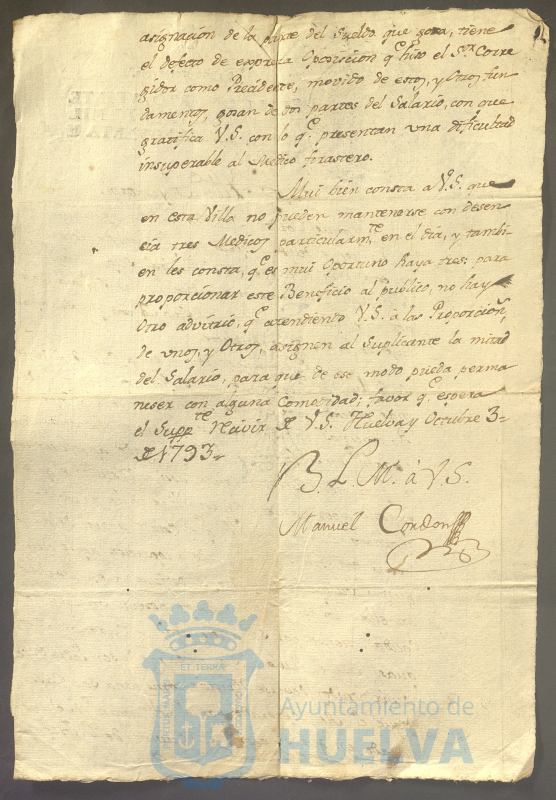 asignación de la parte del Sueldo que goza, tiene
el defecto de expresa Oposicion q.e hizo el S.r Corre
gidor como Presidente, movido de estos, y Otros fun
damentos, gozan de dos partes del Salario, con que
gratifica V.S. con lo q.e presentan una dificultad
insuperable al Medico forastero.
Mui bien consta a V.S. que
en esta Villa no pueden mantenerse con desen
cia tres Medicos particularm.te en el dia, y tambi
en les consta, q.e es mui Oportuno haya tres; para
proporcionar este Beneficio al publico, no hay
Otro advitrio, q.e atendiento V.S. a las Proporcion.s
de unos, y Otros, asignen al Suplicante la mitad
del Salario, para que de ese modo pueda perma
neser con alguna Comosidad; favor q.e espera
el Supp.te Recivir de V.S. Huelva y Octubre 3
de 1793
B. L. M. à V.S.
Manuel Condon
ET TERRÆ
Ayuntamiento de
HUELVA